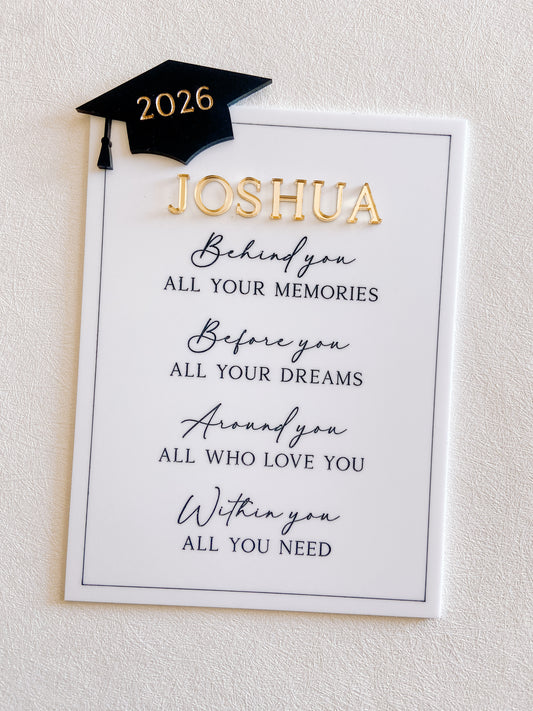 2026
JOSHUA
Behind you
ALL YOUR MEMORIES
Before you
ALL YOUR DREAMS
Around you
ALL WHO LOVE YOU
Within you
ALL YOU NEED